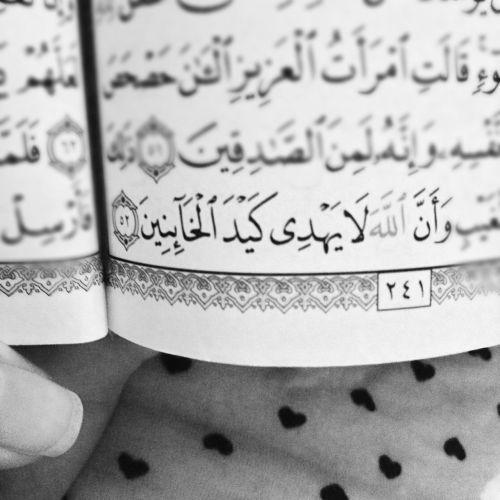 قَالَتِ ٱمْرَأَتُ ٱلْعَزِيزِ ٱلْـَٰٔنَ حَصْحَصَ
وَإِنَّهُۥ لَمِنَ ٱلصَّٰدِقِينَ ٥١ ذَٰلِكَ
وَأَنَّ ٱللَّهَ لَا يَهْدِى كَيْدَ ٱلْخَآئِنِينَ ٥٢
٢٤١
لَعَلَّهُمْ
٦٢ فَلَمَّا
فَأَرْسِلْ